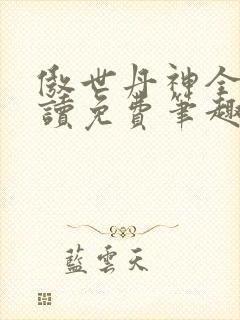 傲世丹神全
讀免費筆趣
藍雲天